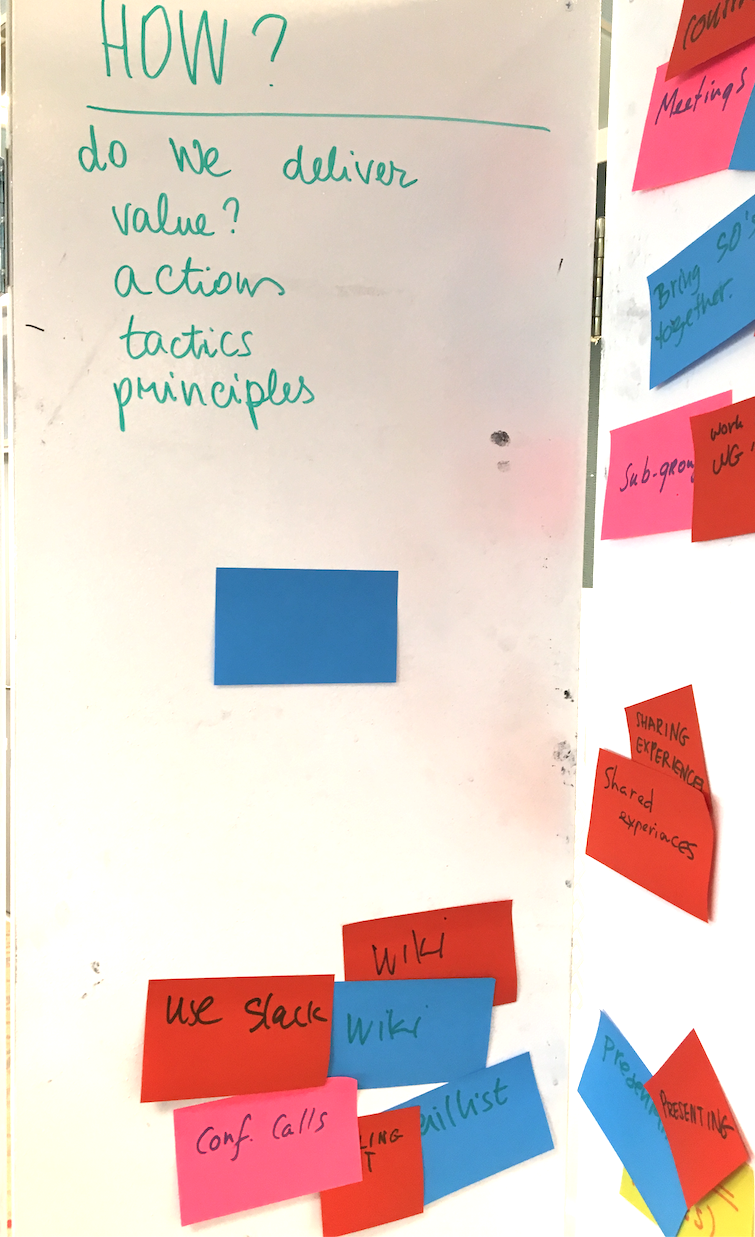 HOW?
do we deliver
value?
actions
tactics
principles
Wiki
use Slack
Wiki
Conf. Calls
Meetings
Bring SO's
together.
Sub-grou
work
WG
SHARING
EXPERIENCES
Shared
experiences
PRESENTING